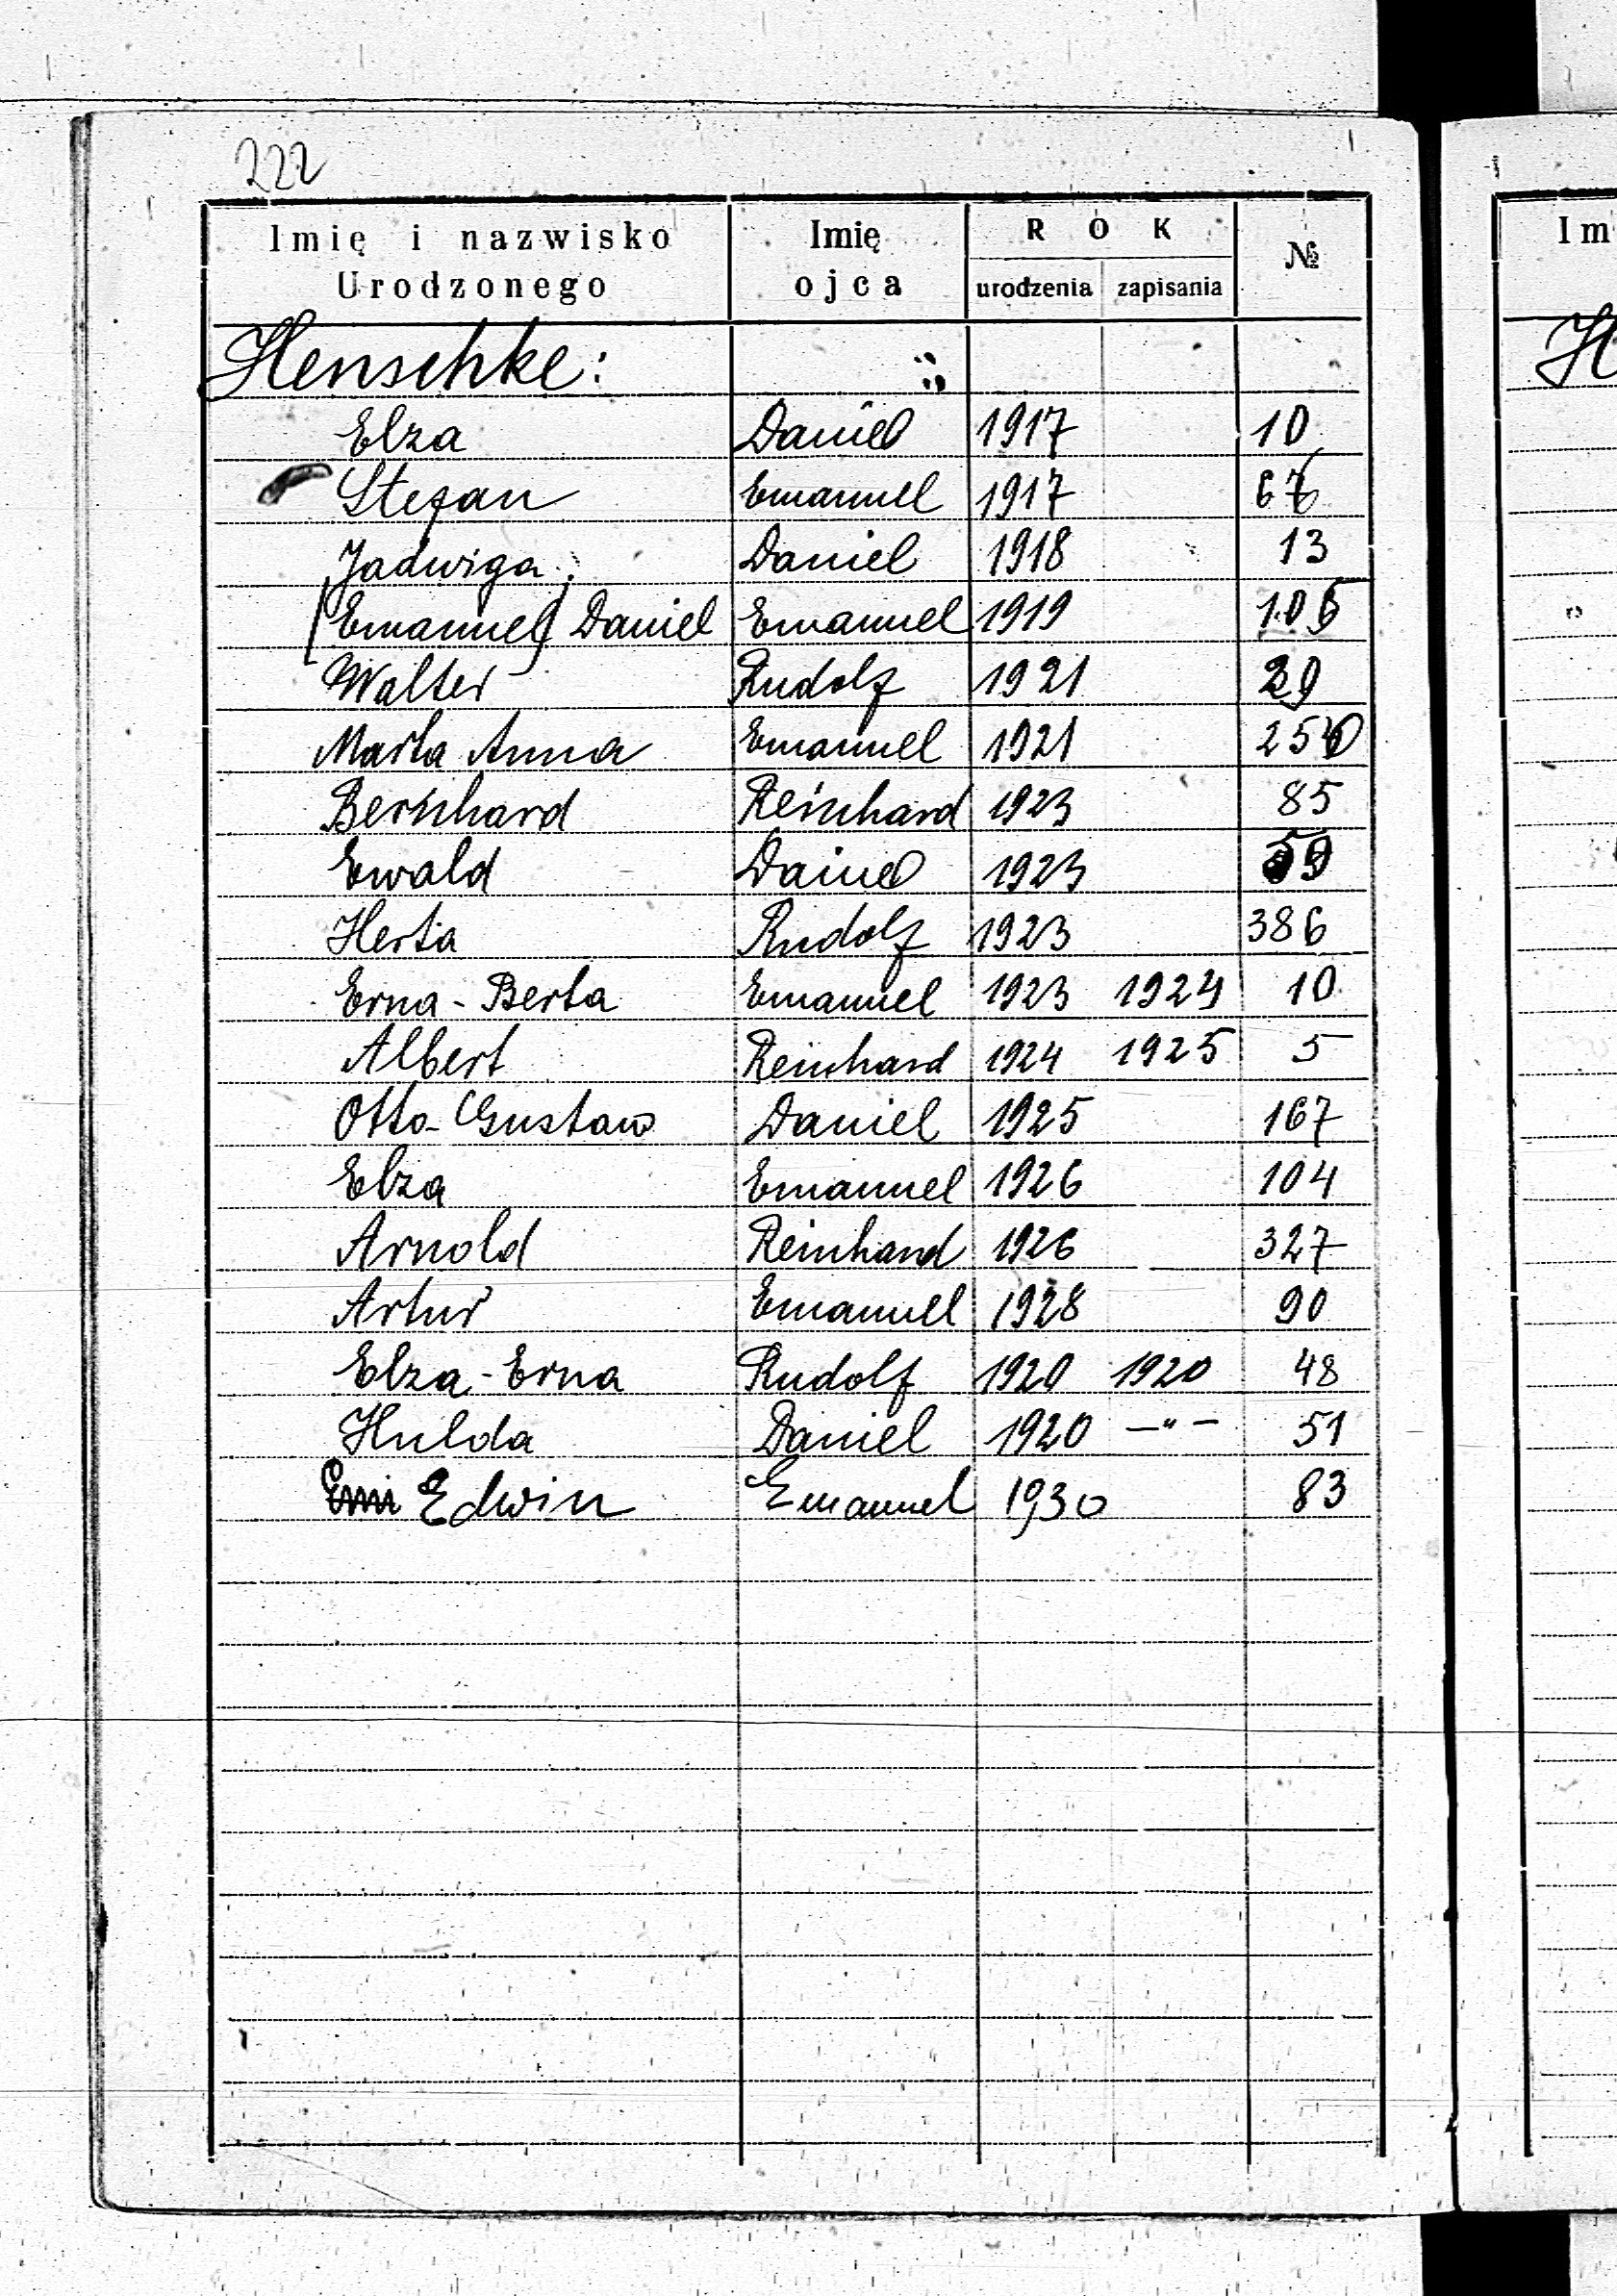 222
Imię i nazwisko Urodzonego Imię ojca ROK urodzenia zapisania №
Henschke: "
Elza Daniel 1917 10
Stefan Emanuel 1917
Jadwiga Daniel 1918 13
(Emanuel) Daniel Emanuel 1919
Walter Rudolf 1921
Marta Anna Emanuel 1921
Bernhard Reinhard 1923 85
Ewald Daniel 1923 59
Herta Rudolf 1923 386
Erna-Berta Emanuel 1923 1924 10
Albert Reinhard 1924 1925 5
Otto-Gustaw Daniel 1925 167
Elza Emanuel 1926 104
Arnold Reinhard 1926 327
Artur Emanuel 1928 90
Elza-Erna Rudolf 1920 1920 48
Hulda Daniel 1920 -"- 51
Emi Edwin Emanuel 1930 83
Im
H
"